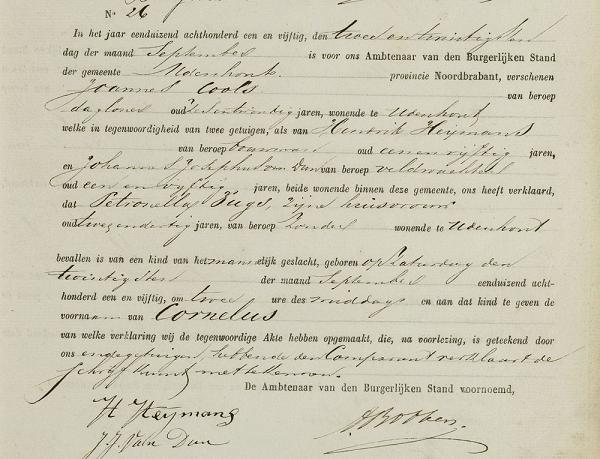 N.° 26
In het jaar eenduizend achthonderd een en vijftig, den twee en twintigsten
dag der maand September is voor ons Ambtenaar van den Burgerlijken Stand
der gemeente Udenhout provincie Noordbrabant, verschenen
Joannes Cools van beroep
daglooner oud zes en twintig jaren, wonende te Udenhout
welke in tegenwoordigheid van twee getuigen, als van Hendrik Heymans
van beroep bouwman oud een en vijftig jaren,
en Johannes Josephus van Dun van beroep veldwachter
oud een en vyftig jaren, beide wonende binnen deze gemeente, ons heeft verklaard,
dat Petronella zijne huisvrouw
oud twee en dertig jaren, van beroep zonder wonende te Udenhout
bevallen is van een kind van het mannelijk geslacht, geboren op Zaturdag den
twintigsten der maand September eenduizend acht-
honderd een en vijftig, om twee ure des middags en aan dat kind te geven de
voornaam van Cornelus
van welke verklaring wij de tegenwoordige Akte hebben opgemaakt, die, na voorlezing, is geteekend door
ons en getuigen, hebbende den Comparant verklaard de
schryfkunst niet te kennen.
De Ambtenaar van den Burgerlijken Stand voornoemd,
H Heymans
J. J. Van Dun